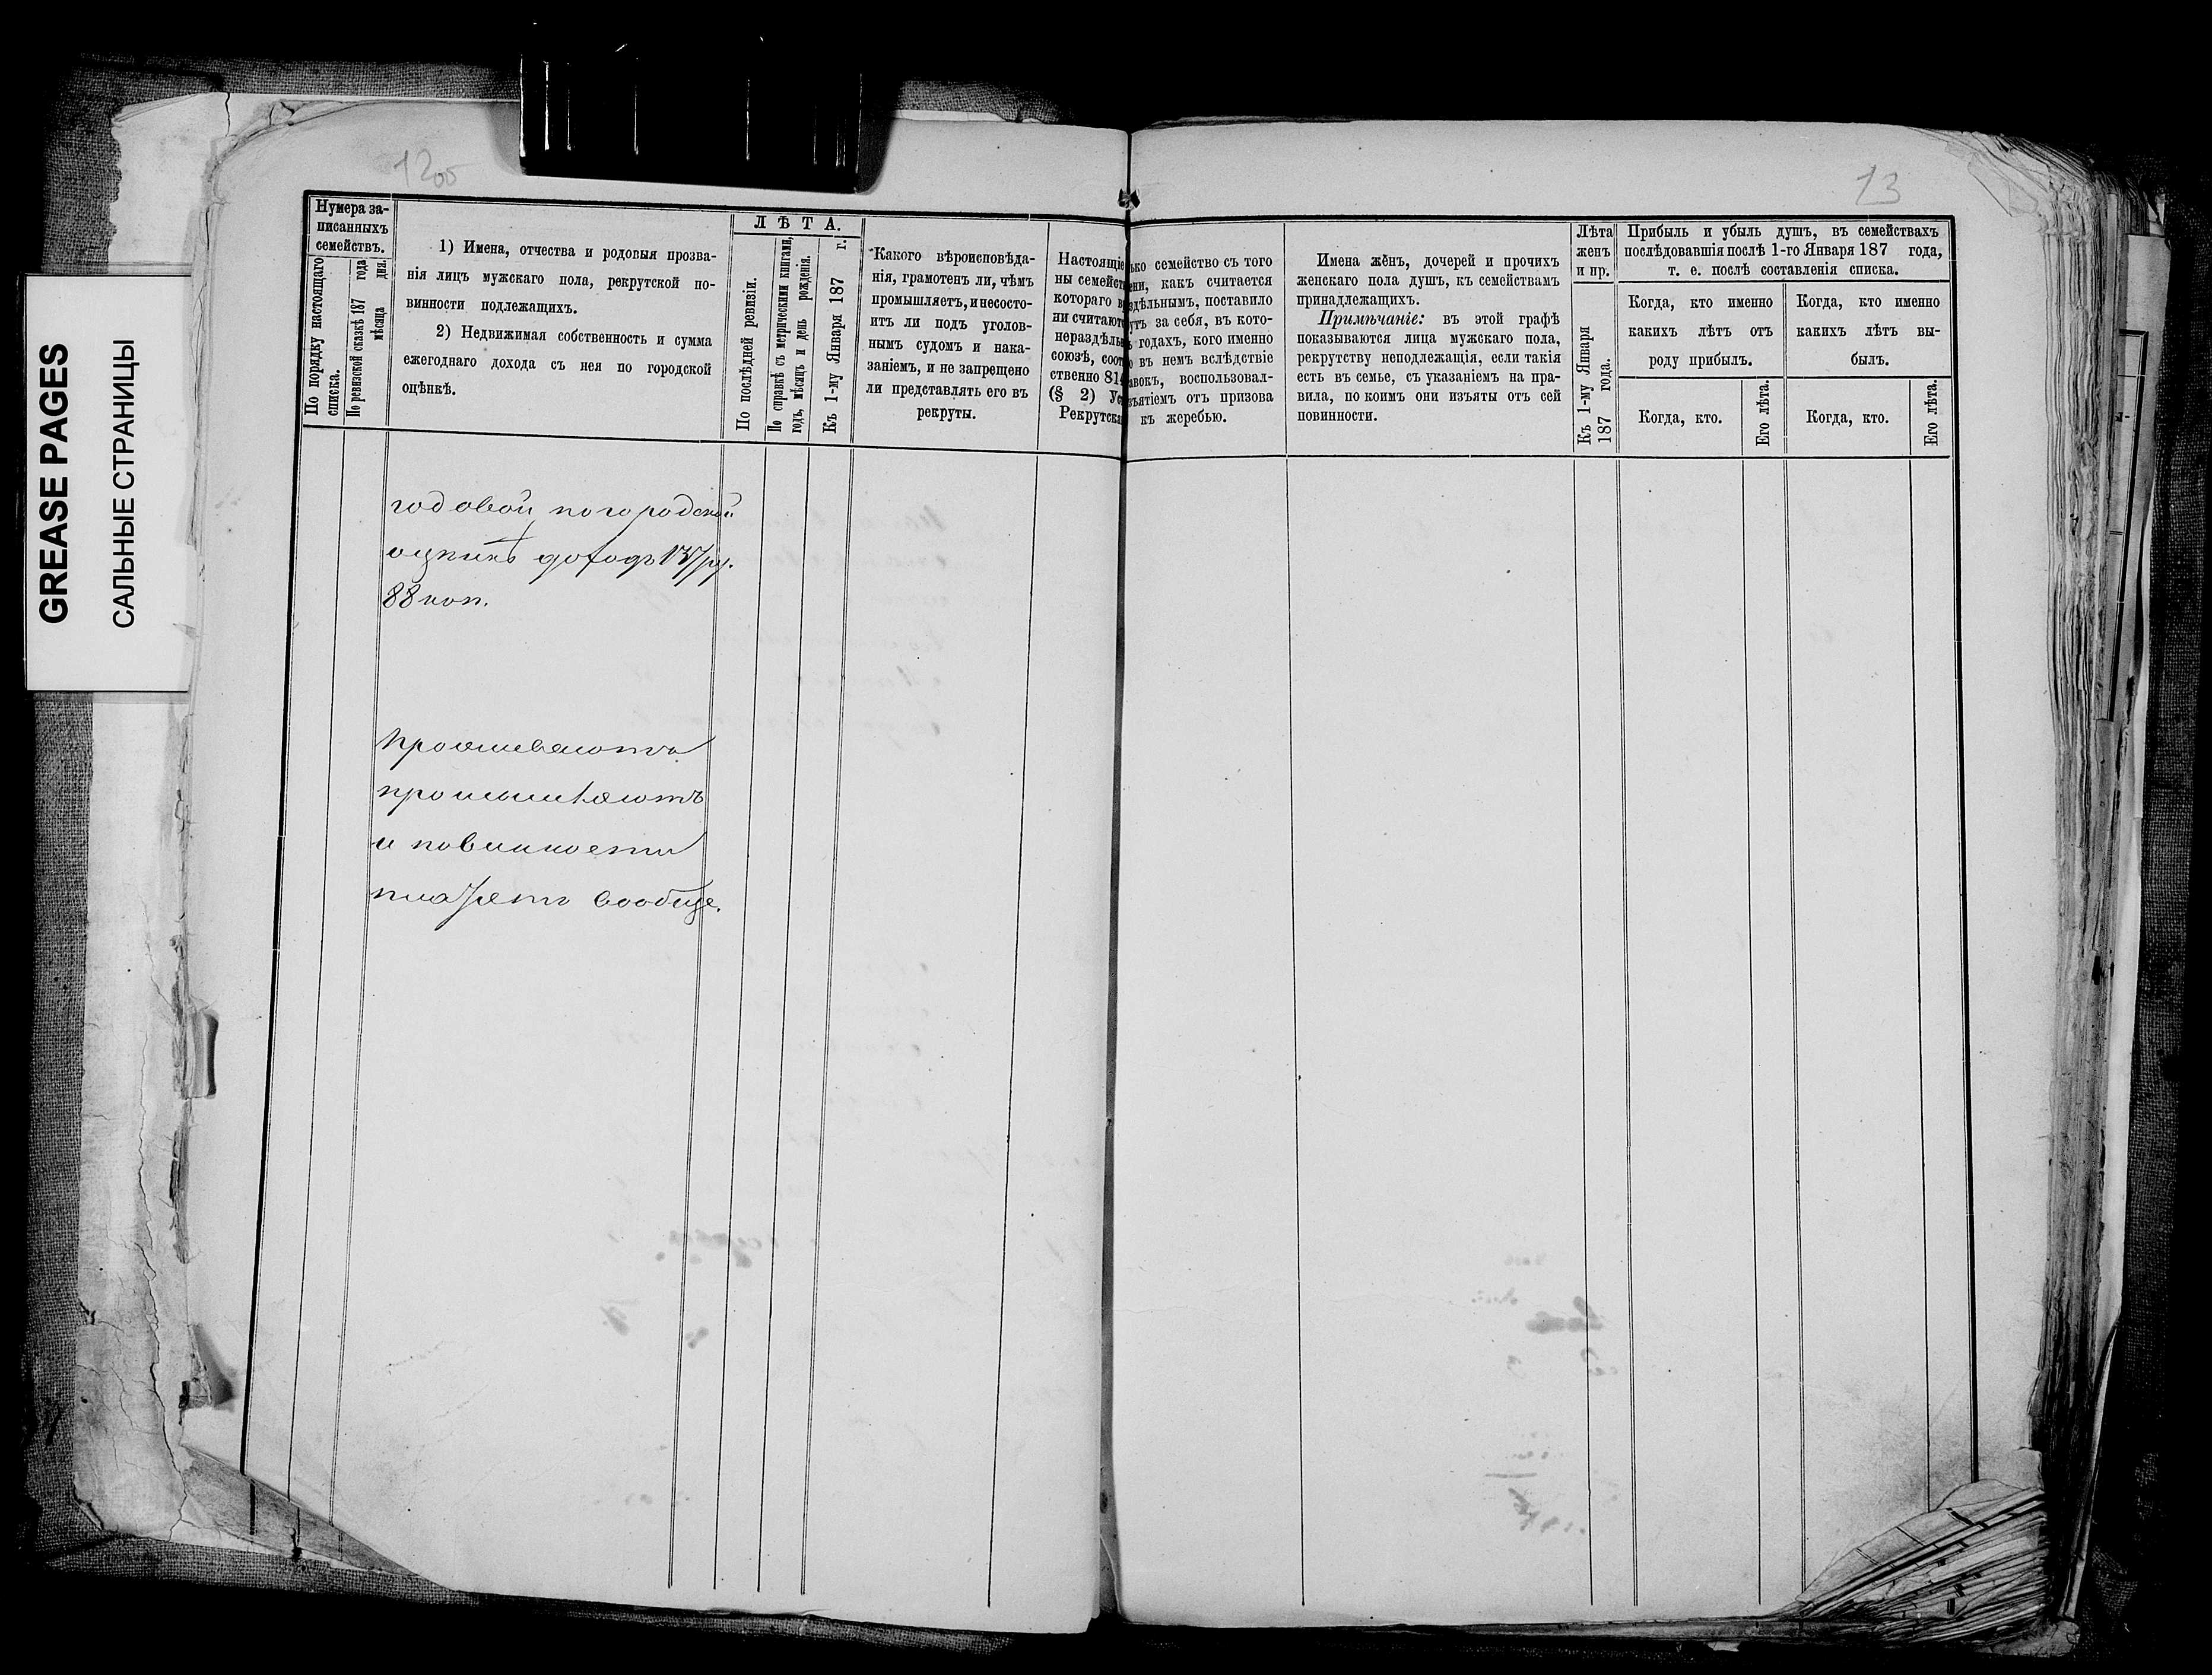 GREASE PAGES
САЛЬНЫЕ СТРАНИЦЫ
12об
13
Нумера за-
писанныхъ
семействъ.
По порядку настоящаго
списка.
По ревизской сказкѣ 187 года
мѣсяца дня.
1) Имена, отчества и родовыя прозва-
нія лицъ мужскаго пола, рекрутской по-
винности подлежащихъ.
2) Недвижимая собственность и сумма
ежегоднаго дохода съ нея по городской
оцѣнкѣ.
ЛѢТА.
По послѣдней ревизіи.
По справкѣ съ метрическими книгами,
годъ, мѣсяцъ и день рожденія.
Къ 1-му Января 187 г.
Какого вѣроисповѣда-
нія, грамотенъ ли, чѣмъ
промышляетъ, и несосто-
итъ ли подъ уголов-
нымъ судомъ и нака-
заніемъ, и не запрещено
ли представлять его въ
рекруты.
Настоящіе
ны семейст
котораго в
ни считают
нераздѣль
союзѣ, соот
ственно 814
(§ 2) Уст
Рекрутска
ько семейство съ того
ени, какъ считается
здѣльнымъ, поставило
утъ за себя, въ кото-
ъ годахъ, кого именно
о въ немъ вслѣдствіе
авокъ, воспользовал-
зъятіемъ отъ призова
къ жеребью.
Имена жёнъ, дочерей и прочихъ
женскаго пола душъ, къ семействамъ
принадлежащихъ.
Примѣчаніе: въ этой графѣ
показываются лица мужскаго пола,
рекрутству неподлежащія, если такія
есть въ семье, съ указаніемъ на пра-
вила, по коимъ они изъяты отъ сей
повинности.
Лѣта
женъ
и пр.
Къ 1-му Января
187 года.
Прибыль и убыль душъ, въ семействахъ
послѣдовавшія послѣ 1-го Января 187 года,
т. е. послѣ составленія списка.
Когда, кто именно
какихъ лѣтъ отъ
роду прибылъ.
Когда, кто.
Его лѣта.
Когда, кто именно
какихъ лѣтъ вы-
былъ.
Когда, кто.
Его лѣта.
годовой по городской
оцѣнкѣ доходъ 137 ру.
88 коп.
Проживаютъ
промышляютъ
и повинности
платятъ вообще.